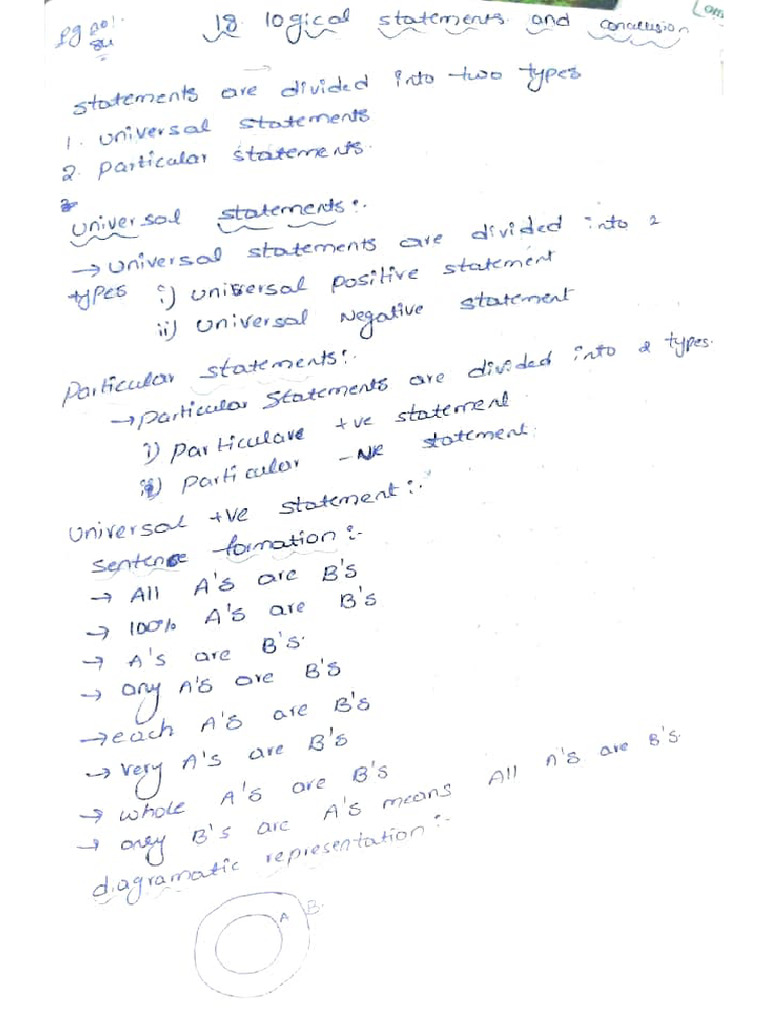 Pg no!.
18 logical statements and conclusion
statements are divided into two types
1. universal statements
2. Particular statements.
universal statements:.
→ universal statements are divided into 2
types i) universal positive statement
ii) universal Negative statement
Particular statements:.
→ Particular Statements are divided into 2 types.
i) Particulare +ve statement
ii) Particular -Ne statement.
universal +ve statement:.
sentence formation:-
→ All A's are B's
→ 100% A's are B's
→ A's are B's.
→ any A's are B's
→ each A's are B's
→ very A's are B's
→ whole A's are B's
→ only B's are A's means All A's are B's.
diagramatic representation:-
A B.